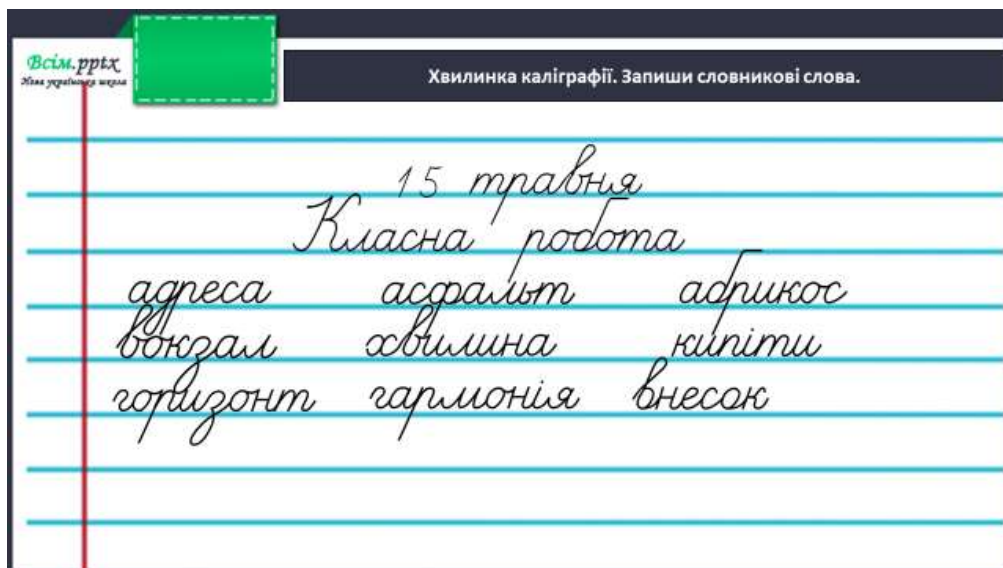 Всім.pptx
Нова українська школа
Хвилинка каліграфії. Запиши словникові слова.
15 травня
Класна робота
адреса асфальт абрикос
вокзал хвилина кипіти
горизонт гармонія внесок